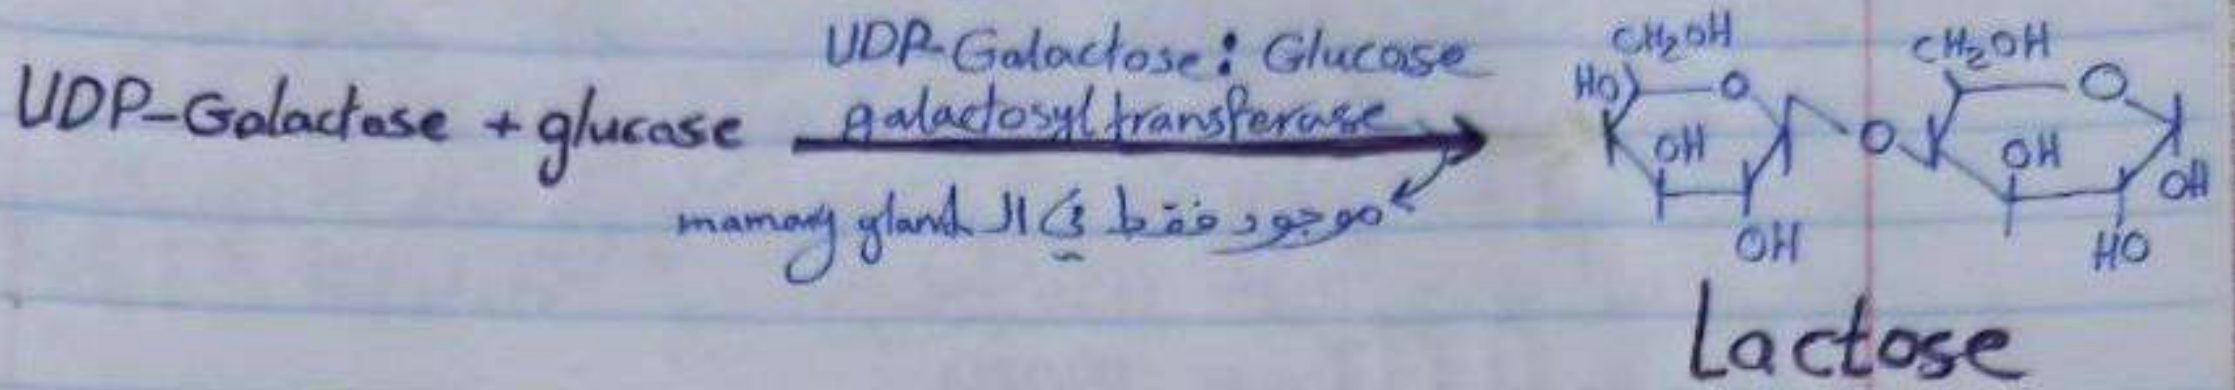 UDP-Galactose + glucose
UDP-Galactose : Glucose
galactosyl transferase
موجود فقط في ال mamary gland
CH₂OH
HO
O
OH
OH
O
CH₂OH
O
OH
OH
HO
Lactose